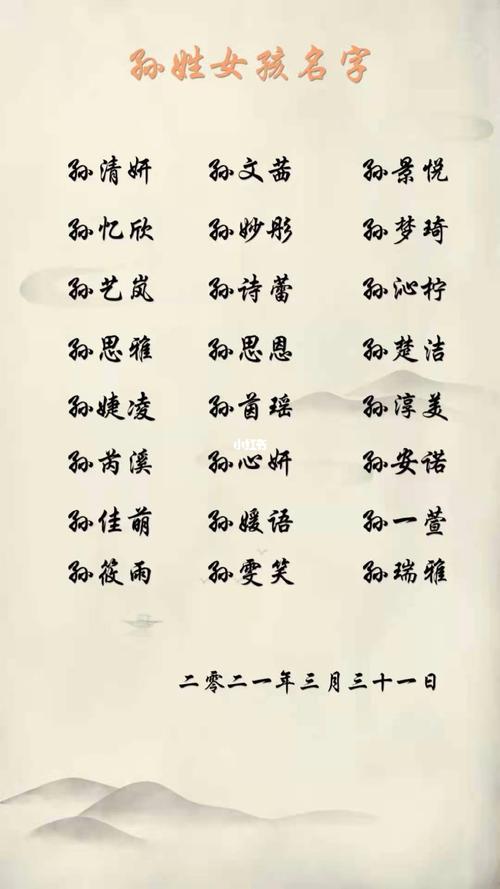 孙姓女孩名字
孙清妍 孙文茜 孙景悦
孙忆欣 孙妙彤 孙梦琦
孙艺岚 孙诗蕾 孙沁柠
孙思雅 孙思恩 孙楚洁
孙婕凌 孙茵瑶 孙淳美
小红书
孙芮溪 孙心妍 孙安诺
孙佳萌 孙媛语 孙一萱
孙筱雨 孙雯笑 孙瑞雅
二零二一年三月三十一日